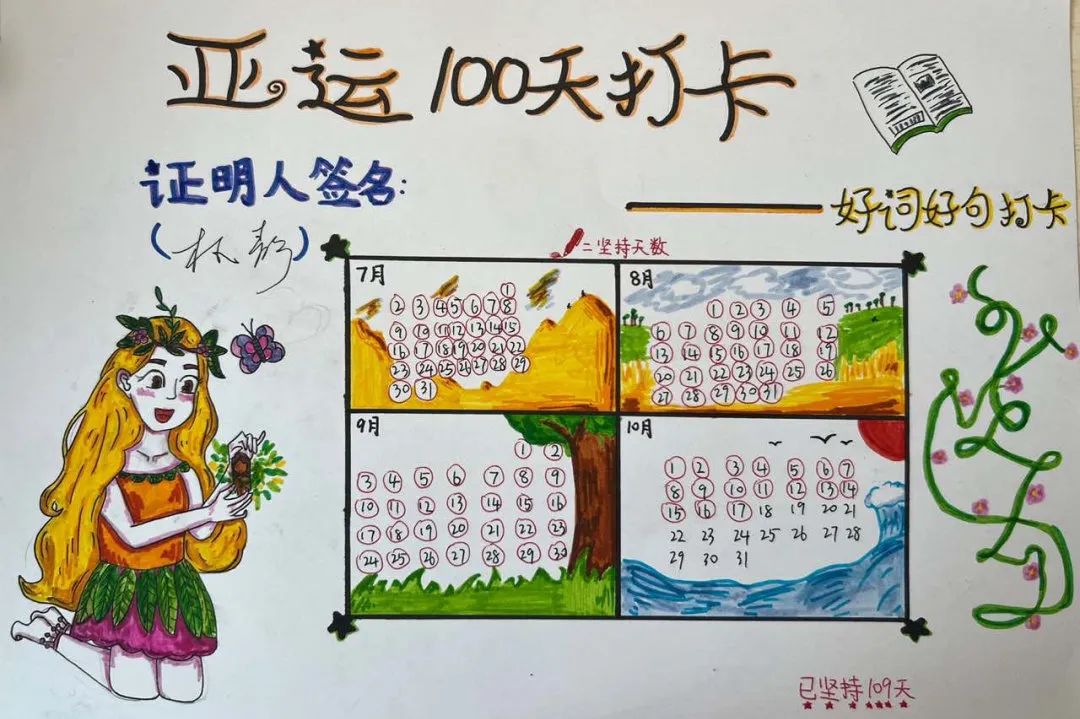 亚运100天打卡
证明人签名:
好词好句打卡
=坚持天数
7月
1
2 3 4 5 6 7 8
9 10 11 12 13 14 15
16 17 18 19 20 21 22
23 24 25 26 27 28 29
30 31
8月
1 2 3 4 5
6 7 8 9 10 11 12
13 14 15 16 17 18 19
20 21 22 23 24 25 26
27 28 29 30 31
9月
1 2
3 4 5 6 7 8 9
10 11 12 13 14 15 16
17 18 19 20 21 22 23
24 25 26 27 28 29 30
10月
1 2 3 4 5 6 7
8 9 10 11 12 13 14
15 16 17 18 19 20 21
22 23 24 25 26 27 28
29 30 31
已坚持109天